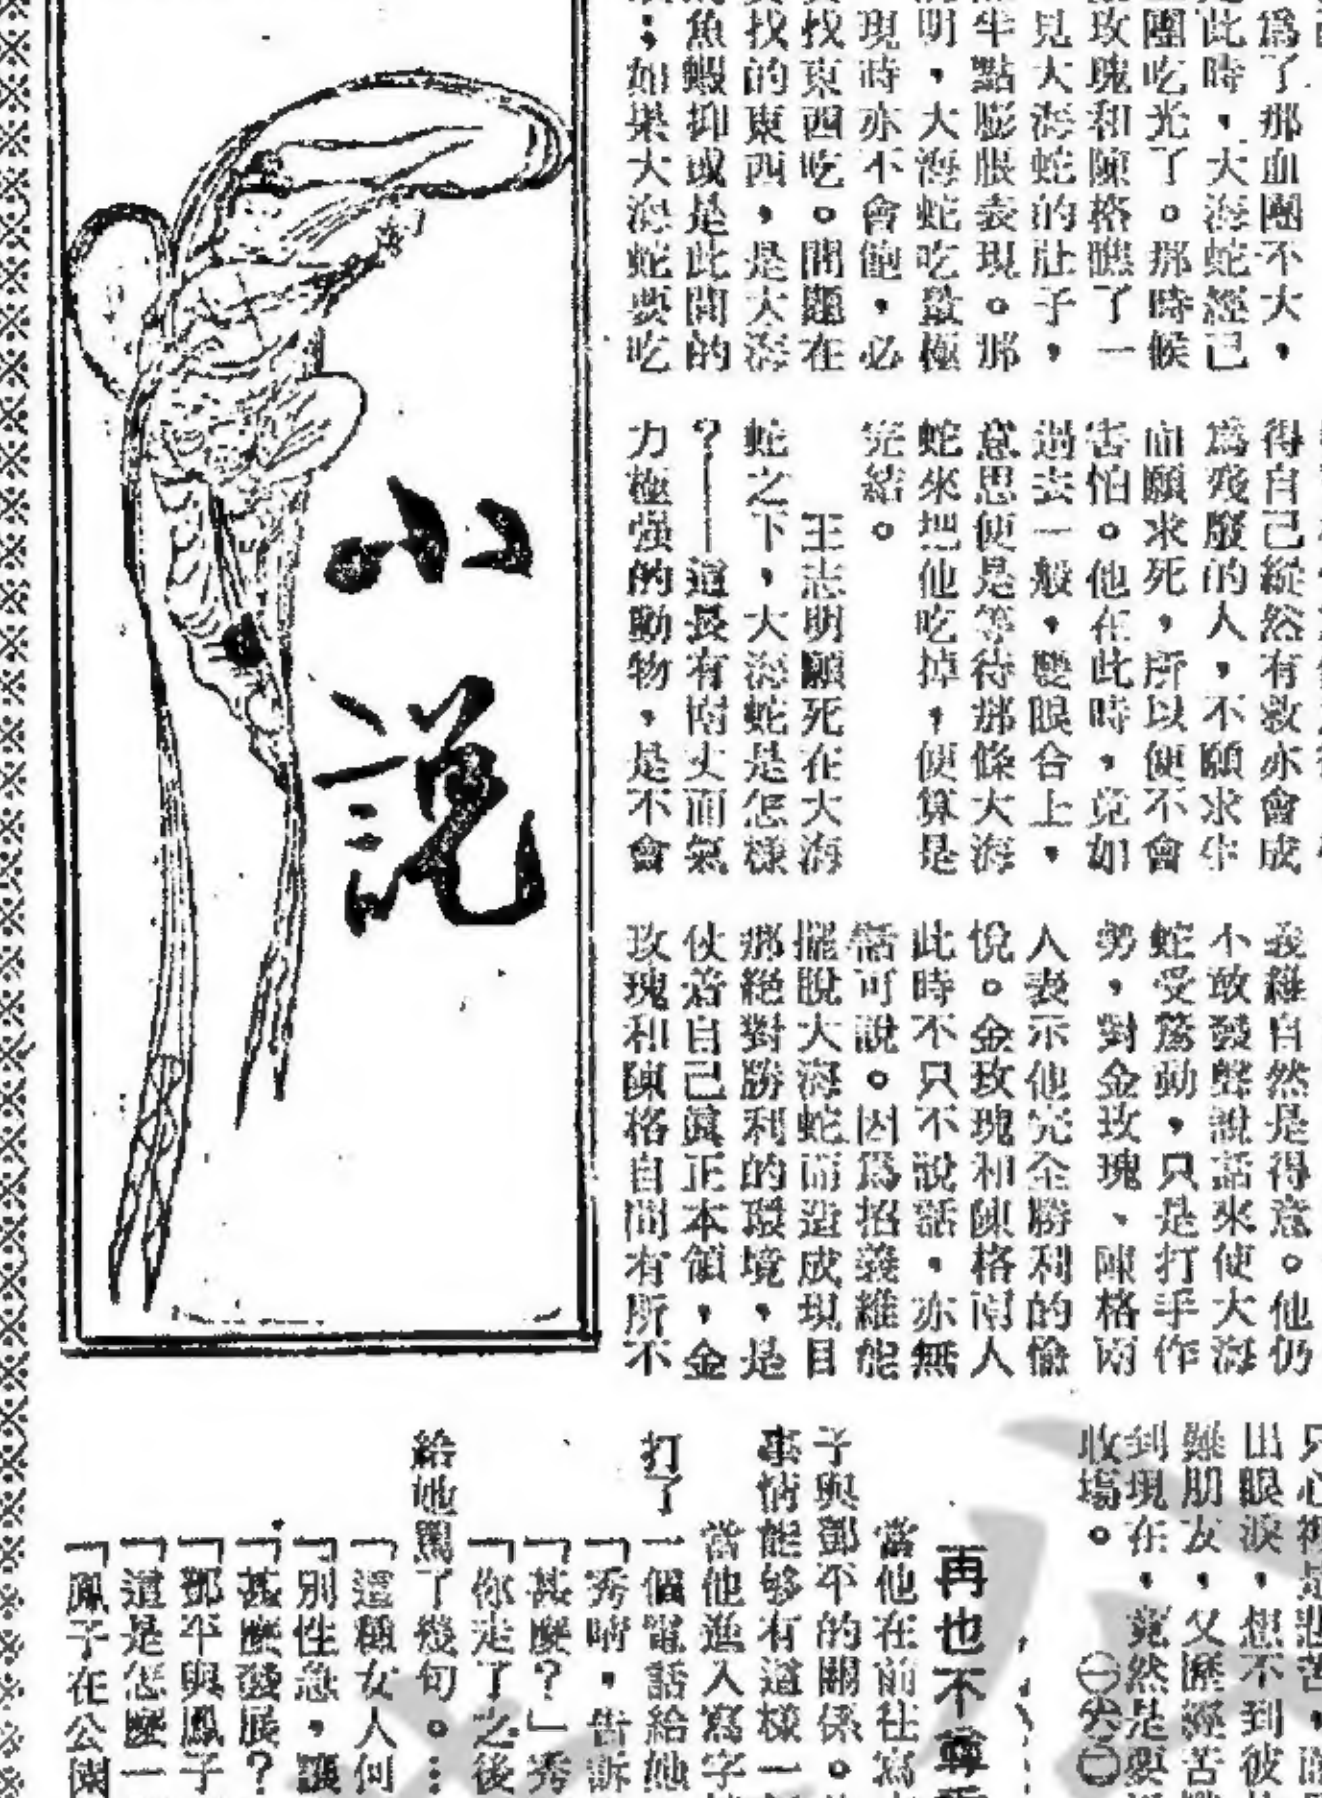 爲了那血團不大，
此時，大海蛇經已
團吃光了。那時候
玫瑰和陳格瞧了一
見大海蛇的肚子，
半點膨脹表現。那
明，大海蛇吃量極
現時亦不會飽，必
找東西吃。問題在
找的東西，是大海
魚蝦抑或是此間的
；如果大海蛇要吃
得自己縱然有救亦會成
爲殘廢的人，不願求生
而願求死，所以便不會
害怕。他在此時，竟如
過去一般，雙眼合上，
意思便是等待那條大海
蛇來把他吃掉，便算是
完結。
王志明願死在大海
蛇之下，大海蛇是怎樣
？——這長有兩丈而氣
力極强的動物，是不會
義雄自然是得意。他仍
不敢發聲說話來使大海
蛇受驚動，只是打手作
勢，對金玫瑰、陳格兩
人表示他完全勝利的愉
悅。金玫瑰和陳格兩人
此時不只不說話，亦無
話可說。因爲招義雄能
擺脫大海蛇而造成現目
那絕對勝利的環境，是
仗着自己眞正本領，金
玫瑰和陳格自問有所不
出眼淚，想不到彼
難朋友，又歷經苦
到現在，竟然是要
收場。
小說
再也不尊
當他在前往寫
子與鄧平的關係。
事情能够有這樣一
當他進入寫字
打了一個電話給她
「秀晴，告訴
「甚麽？」秀
「你走了之後
給她罵了幾句。…
「這種女人何
「別性急，讓
「甚麽發展？
「鄧平與鳳子
「這是怎麽一
「鳳子在公園